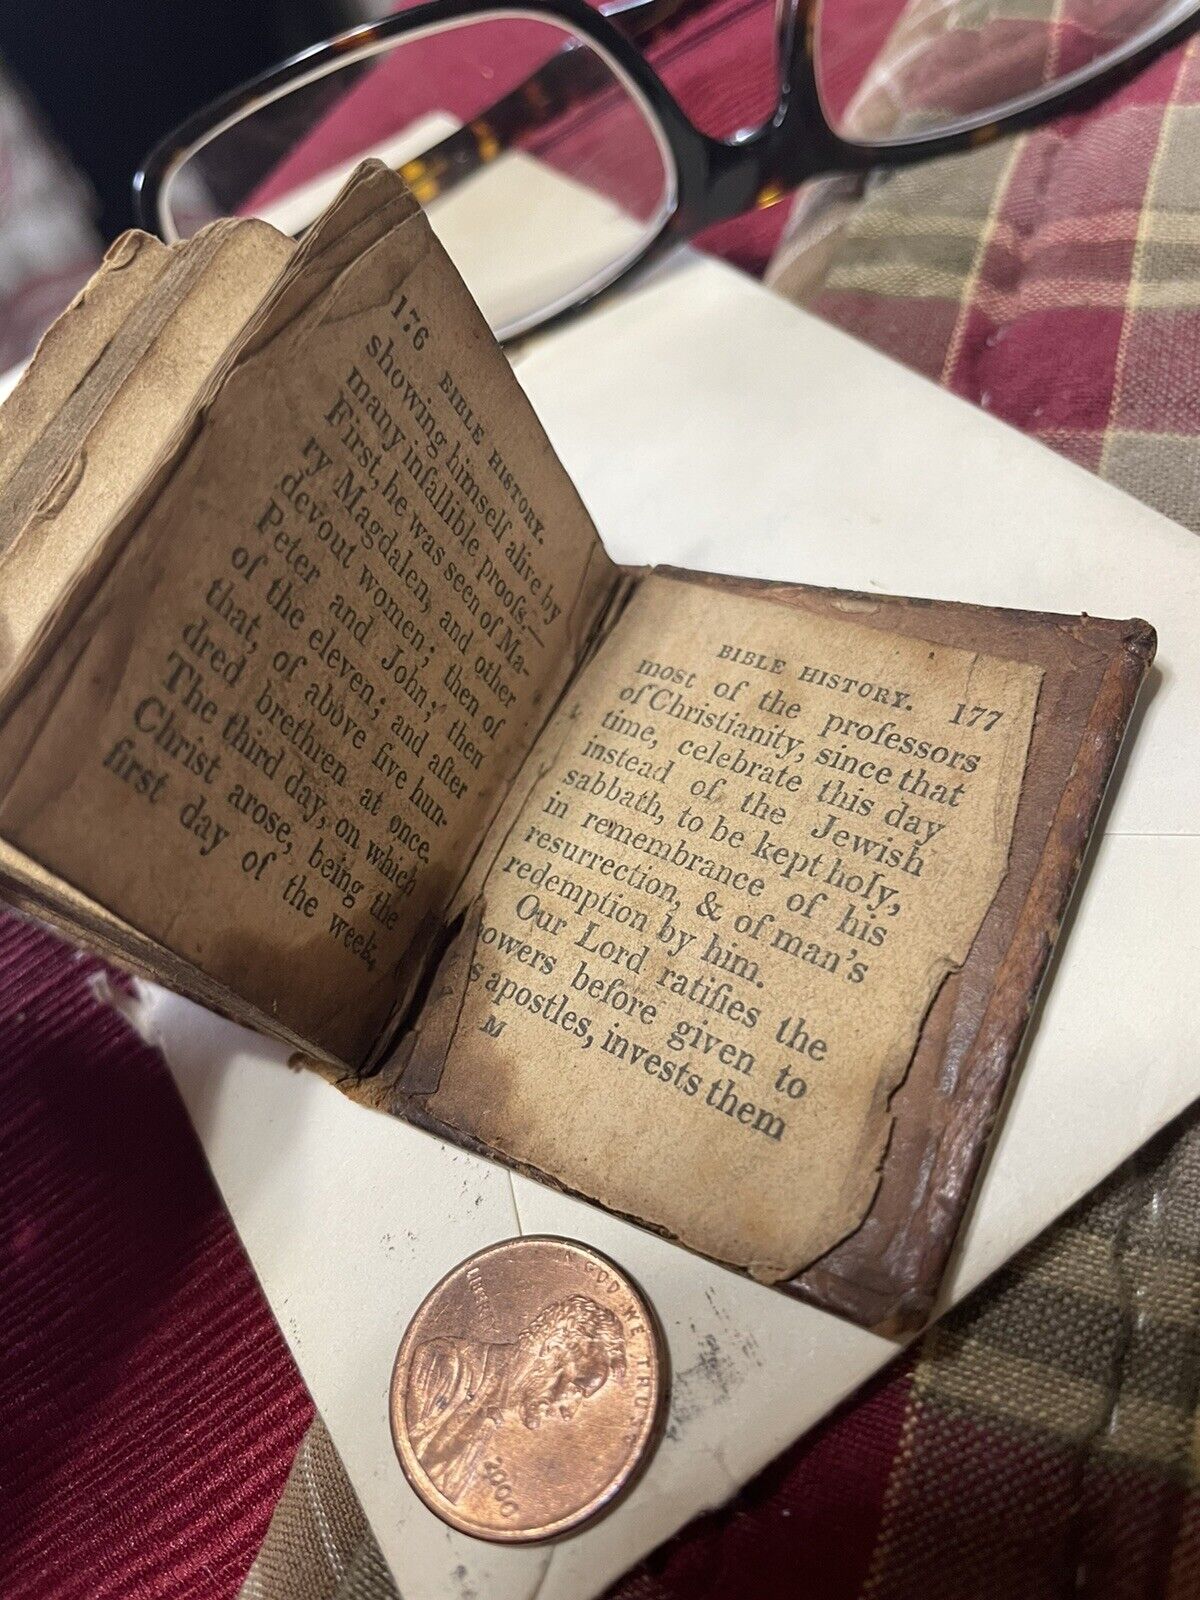 176 BIBLE HISTORY.
showing himself alive by
many infallible proofs.—
First, he was seen of Ma-
ry Magdalen, and other
devout women; then of
Peter and John; then
of the eleven; and after
that, of above five hun-
dred brethren at once.
The third day, on which
Christ arose, being the
first day of the week,
BIBLE HISTORY. 177
most of the professors
of Christianity, since that
time, celebrate this day
instead of the Jewish
sabbath, to be kept holy,
in remembrance of his
resurrection, & of man's
redemption by him.
Our Lord ratifies the
powers before given to
s apostles, invests them
M
IN GOD WE TRUST
LIBERTY
2000